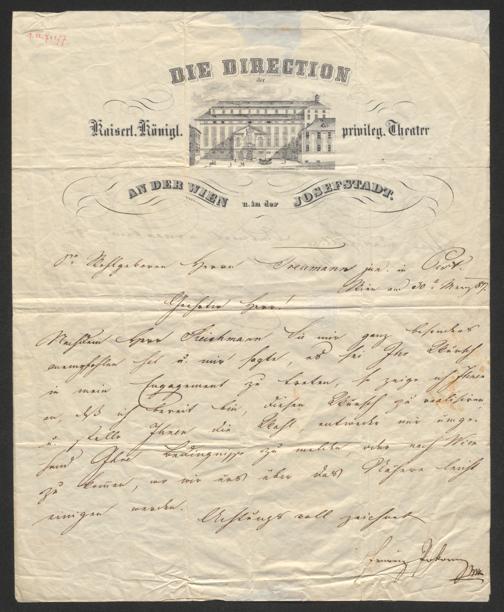 DIE DIRECTION
der
Kaiserl. Königl. privileg. Theater
AN DER WIEN u. in der JOSEFSTADT.
Sr Wohlgeboren Herrn Treumann jun. in Pest.
Wien am 30 März
Geehrter Herr!
Nachdem Herr Sie mir ganz besonders
anempfohlen hat u. mir sagte, es sei Ihr Wunsch
in mein Engagement zu treten, so zeige ich Ihnen
an, daß ich bereit bin, diesen Wunsch zu realisiren
u. stelle Ihnen die Wahl entweder mir umge-
hend Ihre Bedingnisse zu melden oder nach Wien
zu kommen, wo wir uns über das Nähere leicht
einigen werden. Achtungsvoll zeichnet
Franz Pokorny